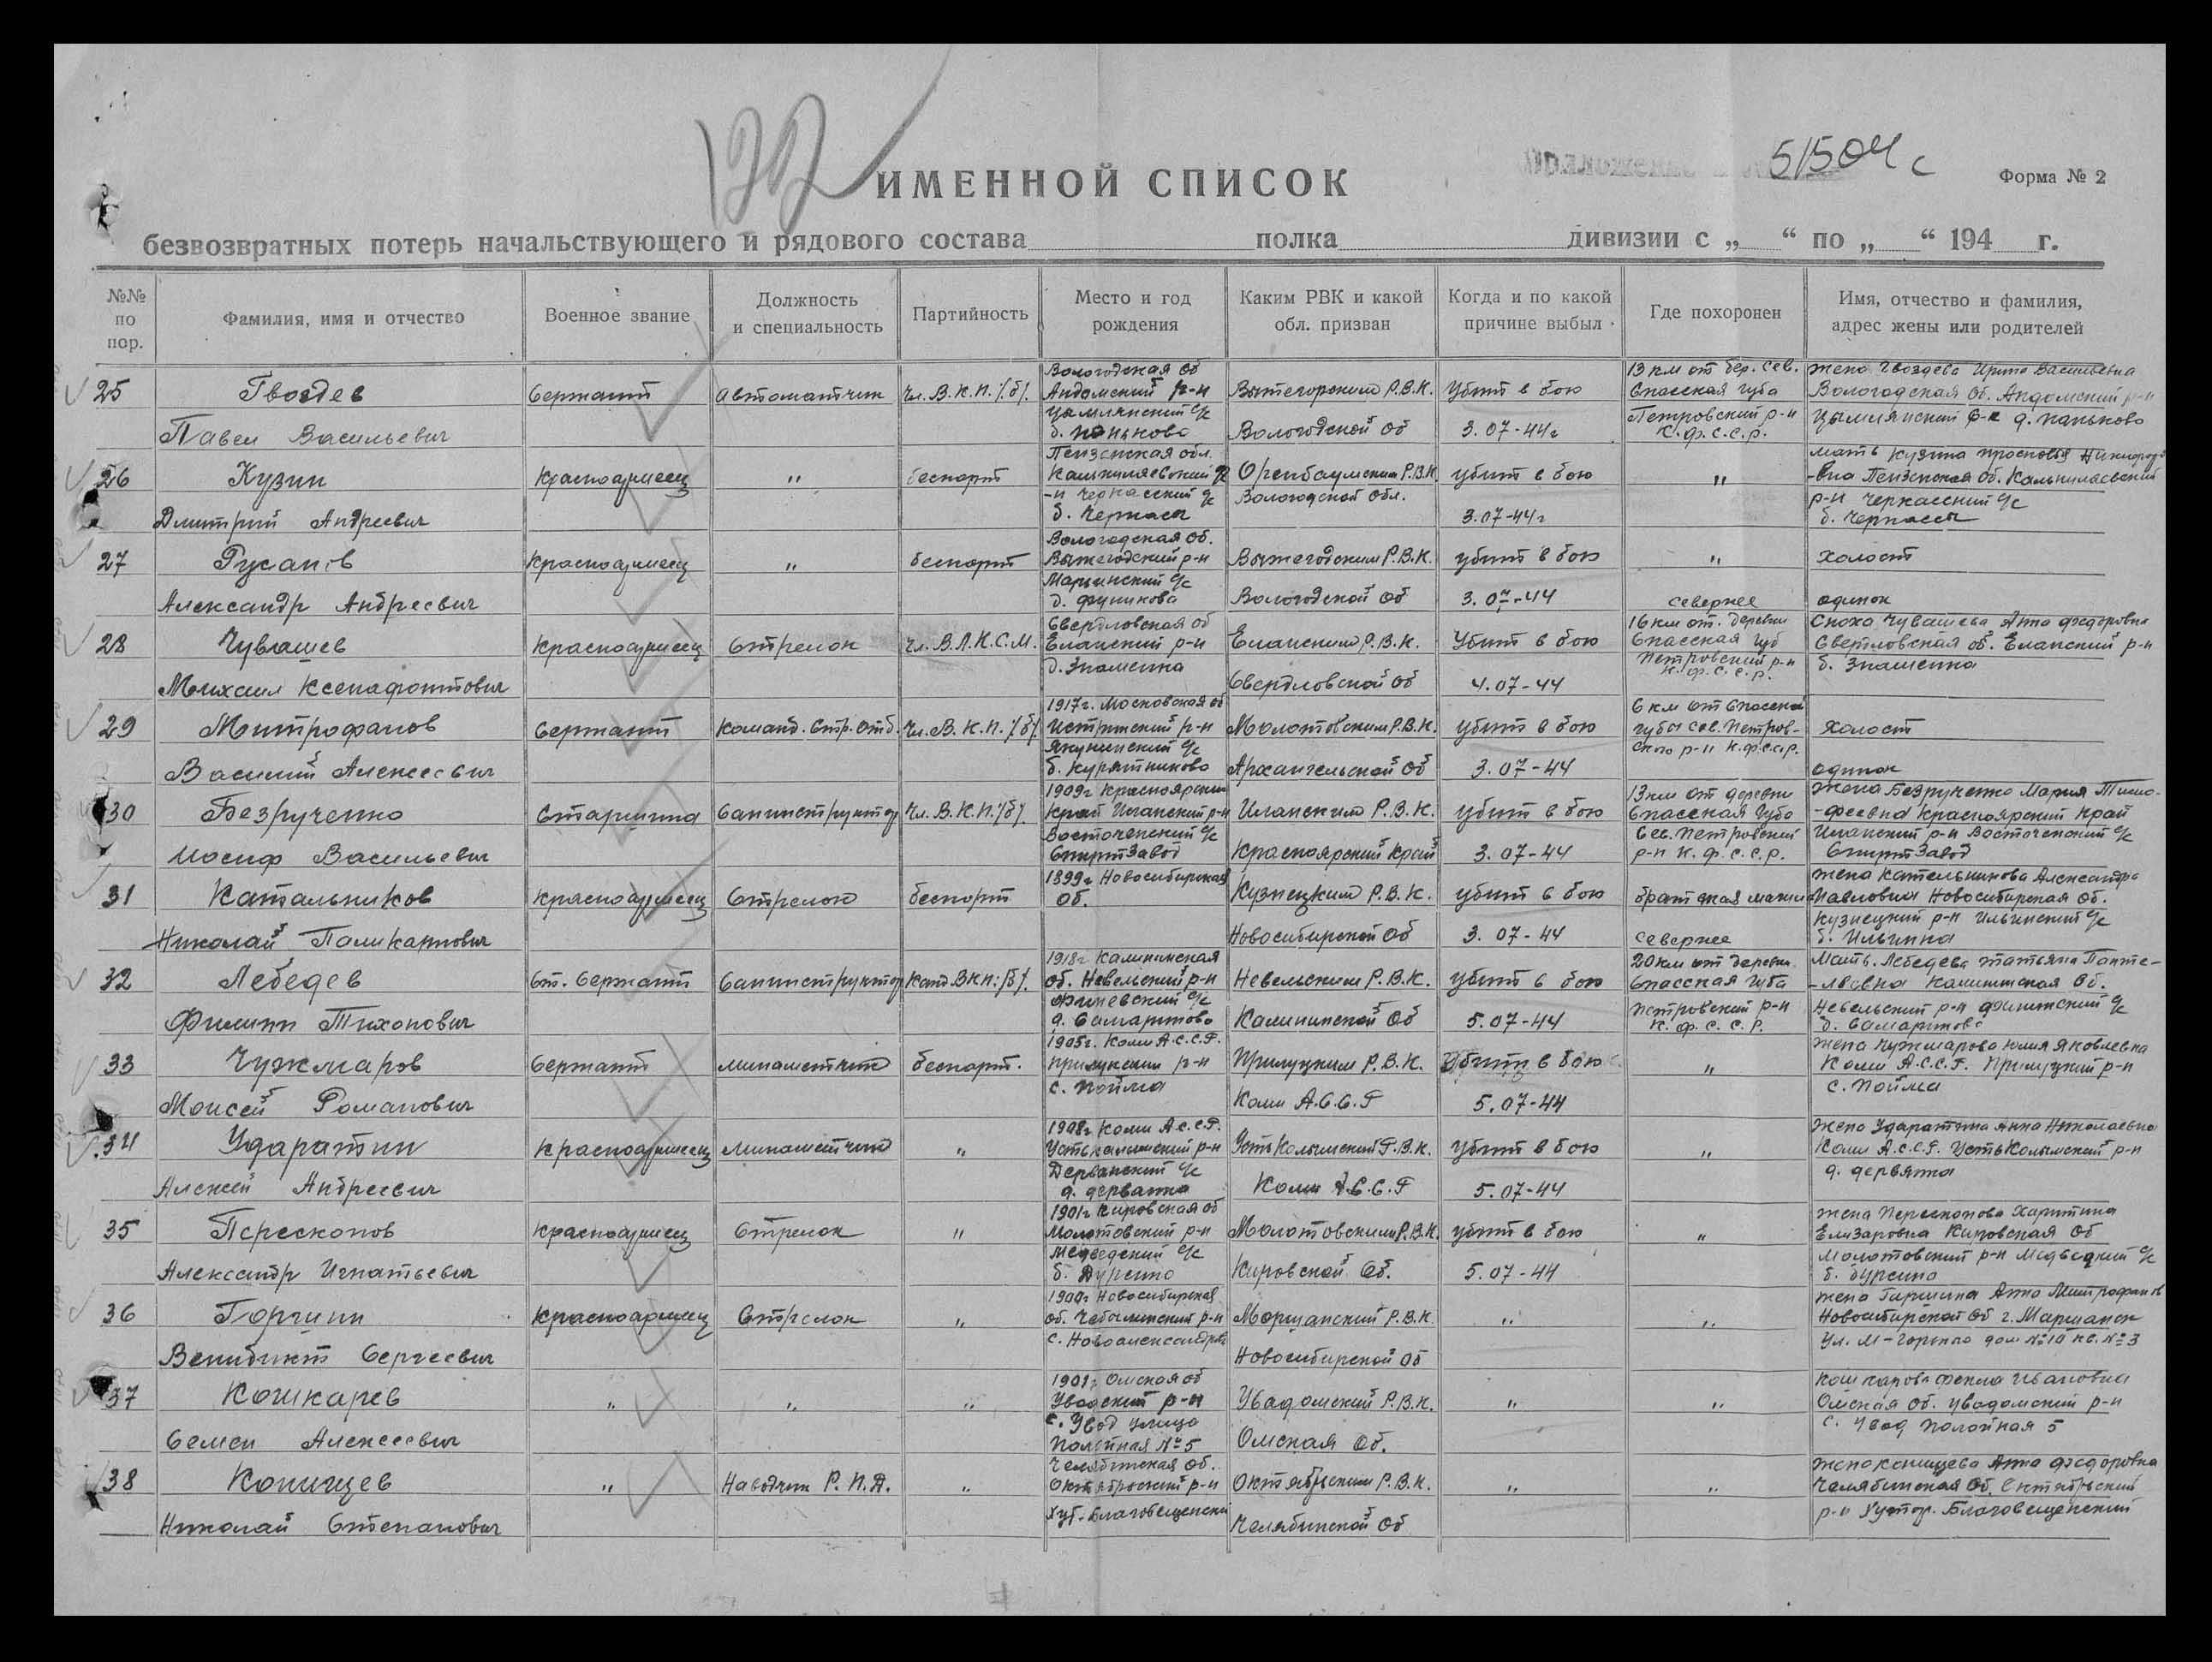 51504с
ИМЕННОЙ СПИСОК
Форма № 2
безвозвратных потерь начальствующего и рядового состава полка дивизии с „ “ по „ “ 194 г.
№№ по пор.
Фамилия, имя и отчество
Военное звание
Должность и специальность
Партийность
Место и год рождения
Каким РВК и какой обл. призван
Когда и по какой причине выбыл
Где похоронен
Имя, отчество и фамилия, адрес жены или родителей
25 Гвоздев Сержант Автоматчик Чл. В.К.П./б/. Вологодская об Андомский р-н Вытегорским Р.В.К. Убит в бою 13 км от дер. Сев. Спасская губа жена Гвоздева Ирина Васильевна Вологодская об. Андомский р-н
Павел Васильевич с/с д. Паньково Вологодской об 3.07-44г Петровский р-н К.Ф.С.С.Р. с-с д. Паньково
26 Кузин Красноармеец " беспорт Пензенская обл. Р.В.К. убит в бою " мать Кузина Пензенская об.
Дмитрий Андреевич Черкасский с/с д. Черкасы Вологодской обл. 3.07-44г р-н Черкасский с/с д. Черкассы
27 Русанов Красноармеец " беспорт Вологодская об. Вытегодский р-н Вытегодским Р.В.К. убит в бою " холост
Александр Андреевич Марьинский с/с д. Фуникова Вологодской об 3.07-44 севернее одинок
28 Чувашев Красноармеец Стрелок Чл. В.Л.К.С.М. Свердловская об Еланский р-н Еланским Р.В.К. Убит в бою 16 км от. деревни Спасская губ Сноха Чувашева Анна Федоровна Свердловская об. Еланский р-н
Михаил Ксенафонтович д. Знаменка Свердловской об 4.07-44 Петровский р-н К.Ф.С.С.Р. д. Знаменка
29 Митрофанов Сержант Команд. Стр. Отд. Чл. В.К.П./б/. 1917г. Московская об Истринский р-н Молотовским Р.В.К. убит в бою 6 км от Спасской губы сев. Петров- холост
Василий Алексеевич Якунинский с/с д. Курятниково Архангельской об 3.07-44 ского р-н К.Ф.С.С.Р. одинок
30 Безрученко Старшина Санинструктор Чл. В.К.П./б/. 1909г Красноярский край Иланский р-н Иланским Р.В.К. убит в бою 13 км от деревни Спасская губа жена Безрученко Мария Тимо- -феевна Красноярский край
Иосиф Васильевич Восточенский с/с Спиртзавод Красноярский край 3.07-44 Сев. Петровский р-н К.Ф.С.С.Р. Иланский р-н Восточенский с/с Спиртзавод
31 Катальников Красноармеец Стрелок беспорт 1899г Новосибирская об. Кузнецким Р.В.К. убит в бою братская могила жена Кательникова Александра Павловна Новосибирская об.
Николай Поликарпович Новосибирской об 3.07-44 севернее Кузнецкий р-н Ильинский с/с д. Ильинка
32 Лебедев Ст. Сержант Санинструктор Канд ВКП./б/. 1918г Калининская об. Невельский р-н Невельским Р.В.К. убит в бою 20 км от деревни Спасская губа Мать. Лебедева Татьяна Панте- -леевна Калининская об.
Филипп Тихонович с/с д. Самартово Калининской об 5.07-44 Петровский р-н К.Ф.С.С.Р. Невельский р-н с/с д. Самартово
33 Чужмаров Сержант минаметчик беспорт. 1905г. Коми А.С.С.Р. Прилузский р-н Прилузким Р.В.К. Убит в бою " жена Чужмарова Юлия Яковлевна Коми А.С.С.Р. Прилузкий р-н
Моисей Романович с. Пойма Коми А.С.С.Р 5.07-44 с. Пойма
34 Ударатин Красноармеец Минаметчик " 1908г Коми А.С.С.Р. р-н Р.В.К. убит в бою " жена Ударатина Анна Николаевна Коми А.С.С.Р. р-н
Алексей Андреевич с/с Коми А.С.С.Р 5.07-44
35 Пересконов Красноармеец Стрелок " 1901г Кировская об Молотовский р-н Молотовским Р.В.К. убит в бою " жена Пересконова Харитина Елизаровна Кировская об
Александр Игнатьевич с/с Кировской Об. 5.07-44 Молотовский р-н с/с
36 Горчин Красноармеец Стрелок " Новосибирская об. р-н Р.В.К. " " жена Анна Новосибирской об
Сергеевич Новосибирской об Ул. М-Горького дом №10 кв. №3
37 Кошкарев " " " 1901г Омская об Уватский р-н Р.В.К. " " Кошкарова Фекла Ивановна Омская об. р-н
Семен Алексеевич с. Уват улица №5 Омская Об. с. Уват 5
38 Конищев " Наводчик Р.П.Д. " Челябинская об. Октябрьский р-н Октябрьским Р.В.К. " " жена Конищева Анна Федоровна Челябинская об. Октябрьский
Николай Степанович Хут. Благовещенский Челябинской об р-н Хутор. Благовещенский